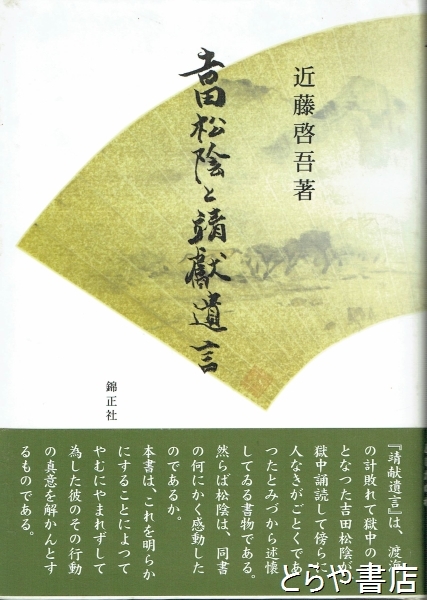 近藤啓吾著
吉田松陰と靖獻遺言
錦正社
『靖献遺言』は、渡海
の計敗れて獄中の
となつた吉田松陰が
獄中誦読して傍らに
人なきがごとくであ
つたとみづから述懐
してゐる書物である。
然らば松陰は、同書
の何にかく感動した
のであるか。
本書は、これを明らか
にすることによつて
やむにやまれずして
為した彼のその行動
の真意を解かんとす
るものである。
とらや書店